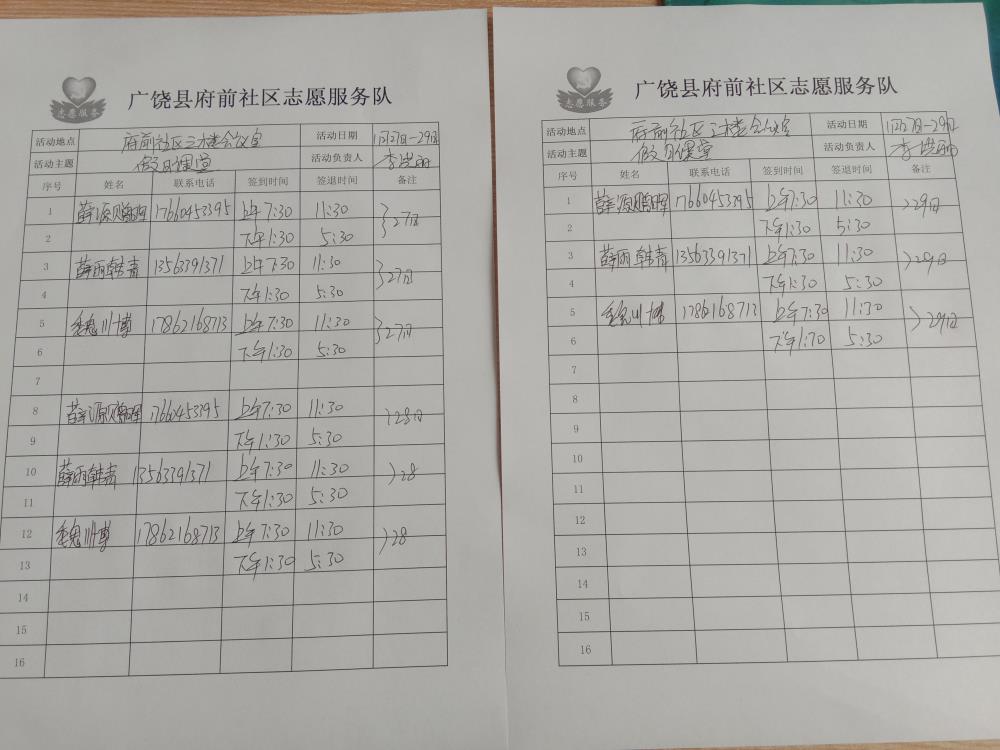 志愿服务
广饶县府前社区志愿服务队
活动地点 府前社区三楼会议室 活动日期 1月27日-29日
活动主题 假日课堂 活动负责人 李洪丽
序号 姓名 联系电话 签到时间 签退时间 备注
1 薛源 17660453395 上午7:30 11:30 27日
2 下午1:30 5:30
3 薛雨 韩青 13563391371 上午7:30 11:30 27日
4 下午1:30 5:30
5 魏川博 17862168713 上午7:30 11:30 27日
6 下午1:30 5:30
7
8 薛源 17660453395 上午7:30 11:30 28日
9 下午1:30 5:30
10 薛雨 韩青 13563391371 上午7:30 11:30 28
11 下午1:30 5:30
12 魏川博 17862168713 上午7:30 11:30 28
13 下午1:30 5:30
14
15
16
志愿服务
广饶县府前社区志愿服务队
活动地点 府前社区三楼会议室 活动日期 1月27日-29日
活动主题 假日课堂 活动负责人 李洪丽
序号 姓名 联系电话 签到时间 签退时间 备注
1 薛源 17660453395 上午7:30 11:30 29日
2 下午1:30 5:30
3 薛雨 韩青 13563391371 上午7:30 11:30 29日
4 下午1:30 5:30
5 魏川博 17862168713 上午7:30 11:30 29日
6 下午1:70 5:30
7
8
9
10
11
12
13
14
15
16